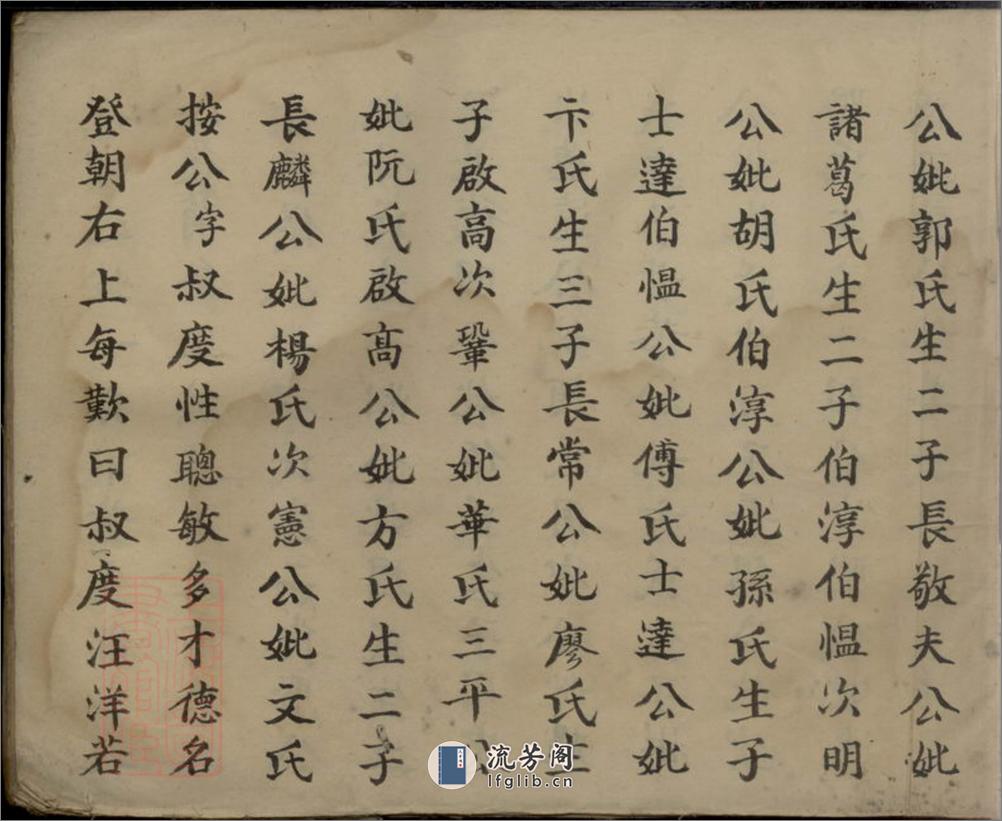 公妣郭氏生二子長敬夫公妣
諸葛氏生二子伯淳伯愠次明
公妣胡氏伯淳公妣孫氏生子
士達伯愠公妣傅氏士達公妣
卞氏生三子長常公妣廖氏生
子啟高次鞏公妣華氏三平公
妣阮氏啟高公妣方氏生二子
長麟公妣楊氏次憲公妣文氏
按公字叔度性聰敏多才德名
登朝右上每歎曰叔度汪洋若
流芳阁
lfglib.cn